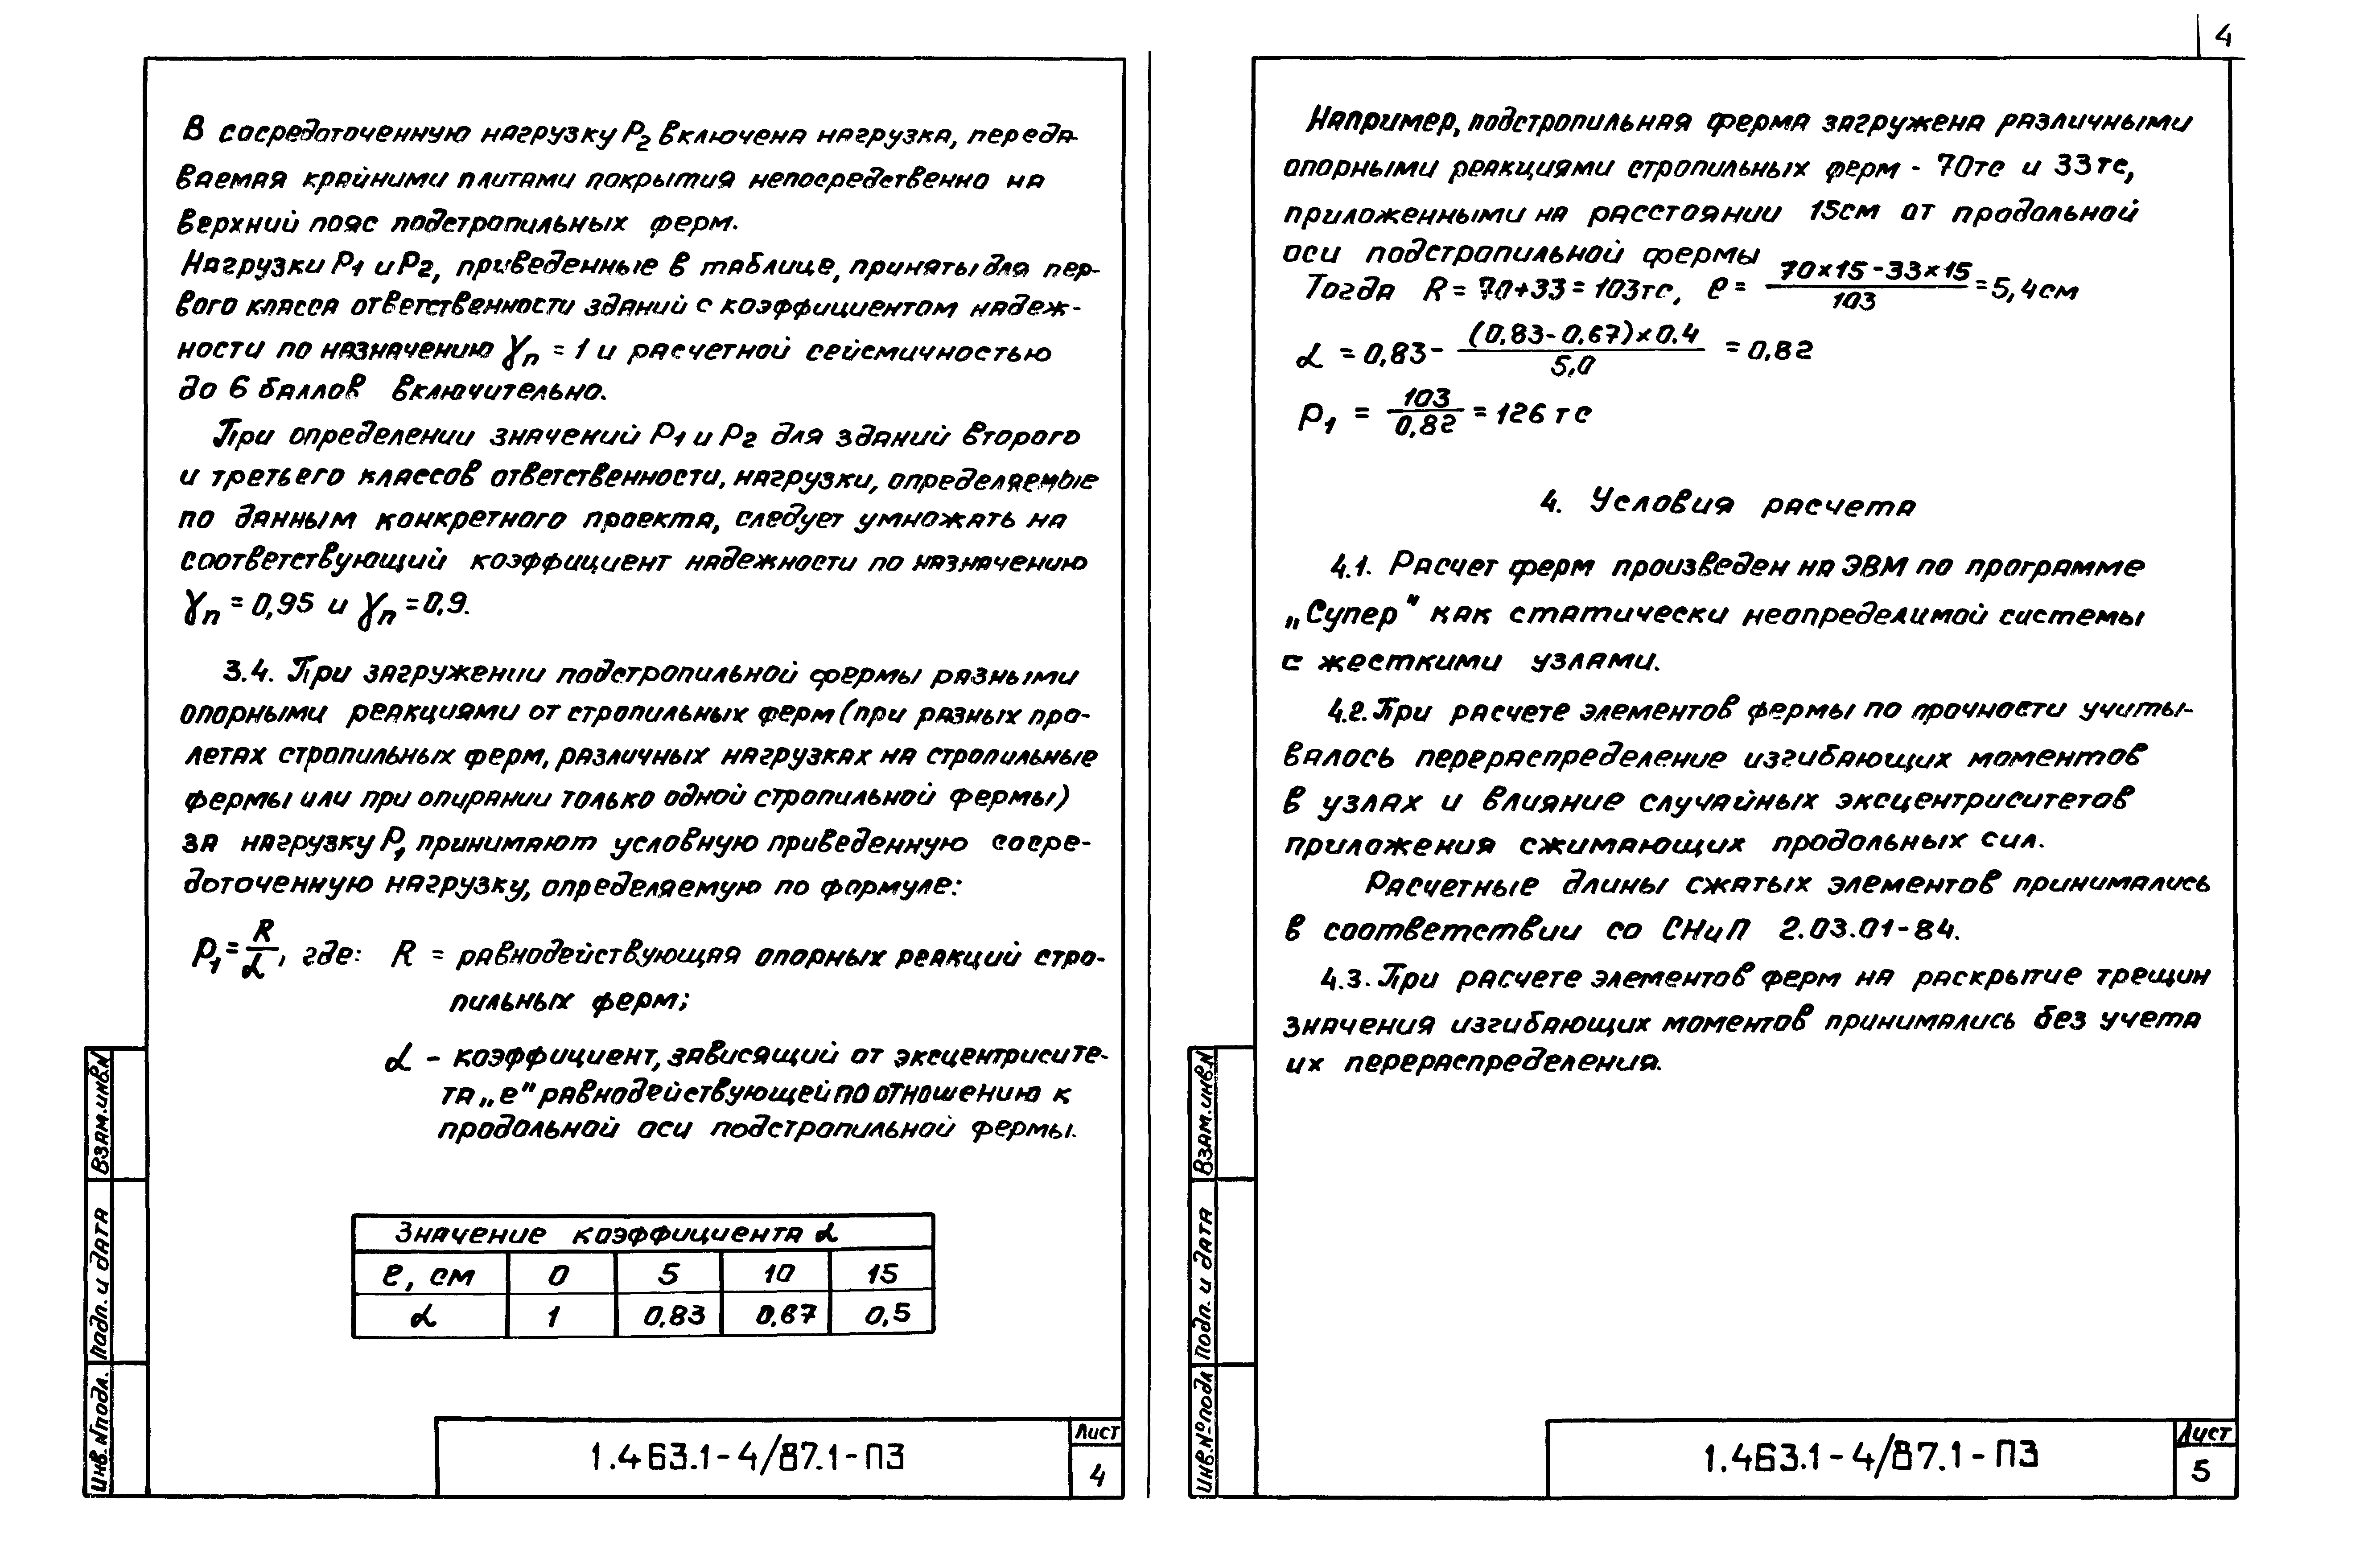 В сосредоточенную нагрузку P2 включена нагрузка, переда-
ваемая крайними плитами покрытия непосредственно на
верхний пояс подстропильных ферм.
Нагрузки P1 и P2, приведенные в таблице, приняты для пер-
вого класса ответственности зданий с коэффициентом надеж-
ности по назначению γп = 1 и расчетной сейсмичностью
до 6 баллов включительно.
При определении значений P1 и P2 для зданий второго
и третьего классов ответственности, нагрузки, определяемые
по данным конкретного проекта, следует умножать на
соответствующий коэффициент надежности по назначению
γп = 0,95 и γп = 0,9.
3.4. При загружении подстропильной фермы разными
опорными реакциями от стропильных ферм (при разных про-
летах стропильных ферм, различных нагрузках на стропильные
фермы или при опирании только одной стропильной фермы)
за нагрузку P1 принимают условную приведенную сосре-
доточенную нагрузку, определяемую по формуле:
P1 = R/α, где: R = равнодействующая опорных реакций стро-
пильных ферм;
α - коэффициент, зависящий от эксцентрисите-
та „e" равнодействующей по отношению к
продольной оси подстропильной фермы.
Значение коэффициента α
e, см 0 5 10 15
α 1 0,83 0,67 0,5
Взам.инв.N
Подп. и дата
Инв.Nподл.
1.463.1-4/87.1-ПЗ
Лист
4
4
Например, подстропильная ферма загружена различными
опорными реакциями стропильных ферм - 70тс и 33тс,
приложенными на расстоянии 15см от продольной
оси подстропильной фермы
Тогда R = 70+33 = 103тс, e = 70×15-33×15/103 = 5,4см
α = 0,83- (0,83-0,67)×0.4/5,0 = 0,82
P1 = 103/0,82 = 126 тс
4. Условия расчета
4.1. Расчет ферм произведен на ЭВМ по программе
„Супер" как статически неопределимой системы
с жесткими узлами.
4.2. При расчете элементов фермы по прочности учиты-
валось перераспределение изгибающих моментов
в узлах и влияние случайных эксцентриситетов
приложения сжимающих продольных сил.
Расчетные длины сжатых элементов принимались
в соответствии со СНиП 2.03.01-84.
4.3. При расчете элементов ферм на раскрытие трещин
значения изгибающих моментов принимались без учета
их перераспределения.
Взам.инв.N
Подп. и дата
Инв.№подл
1.463.1-4/87.1-ПЗ
Лист
5